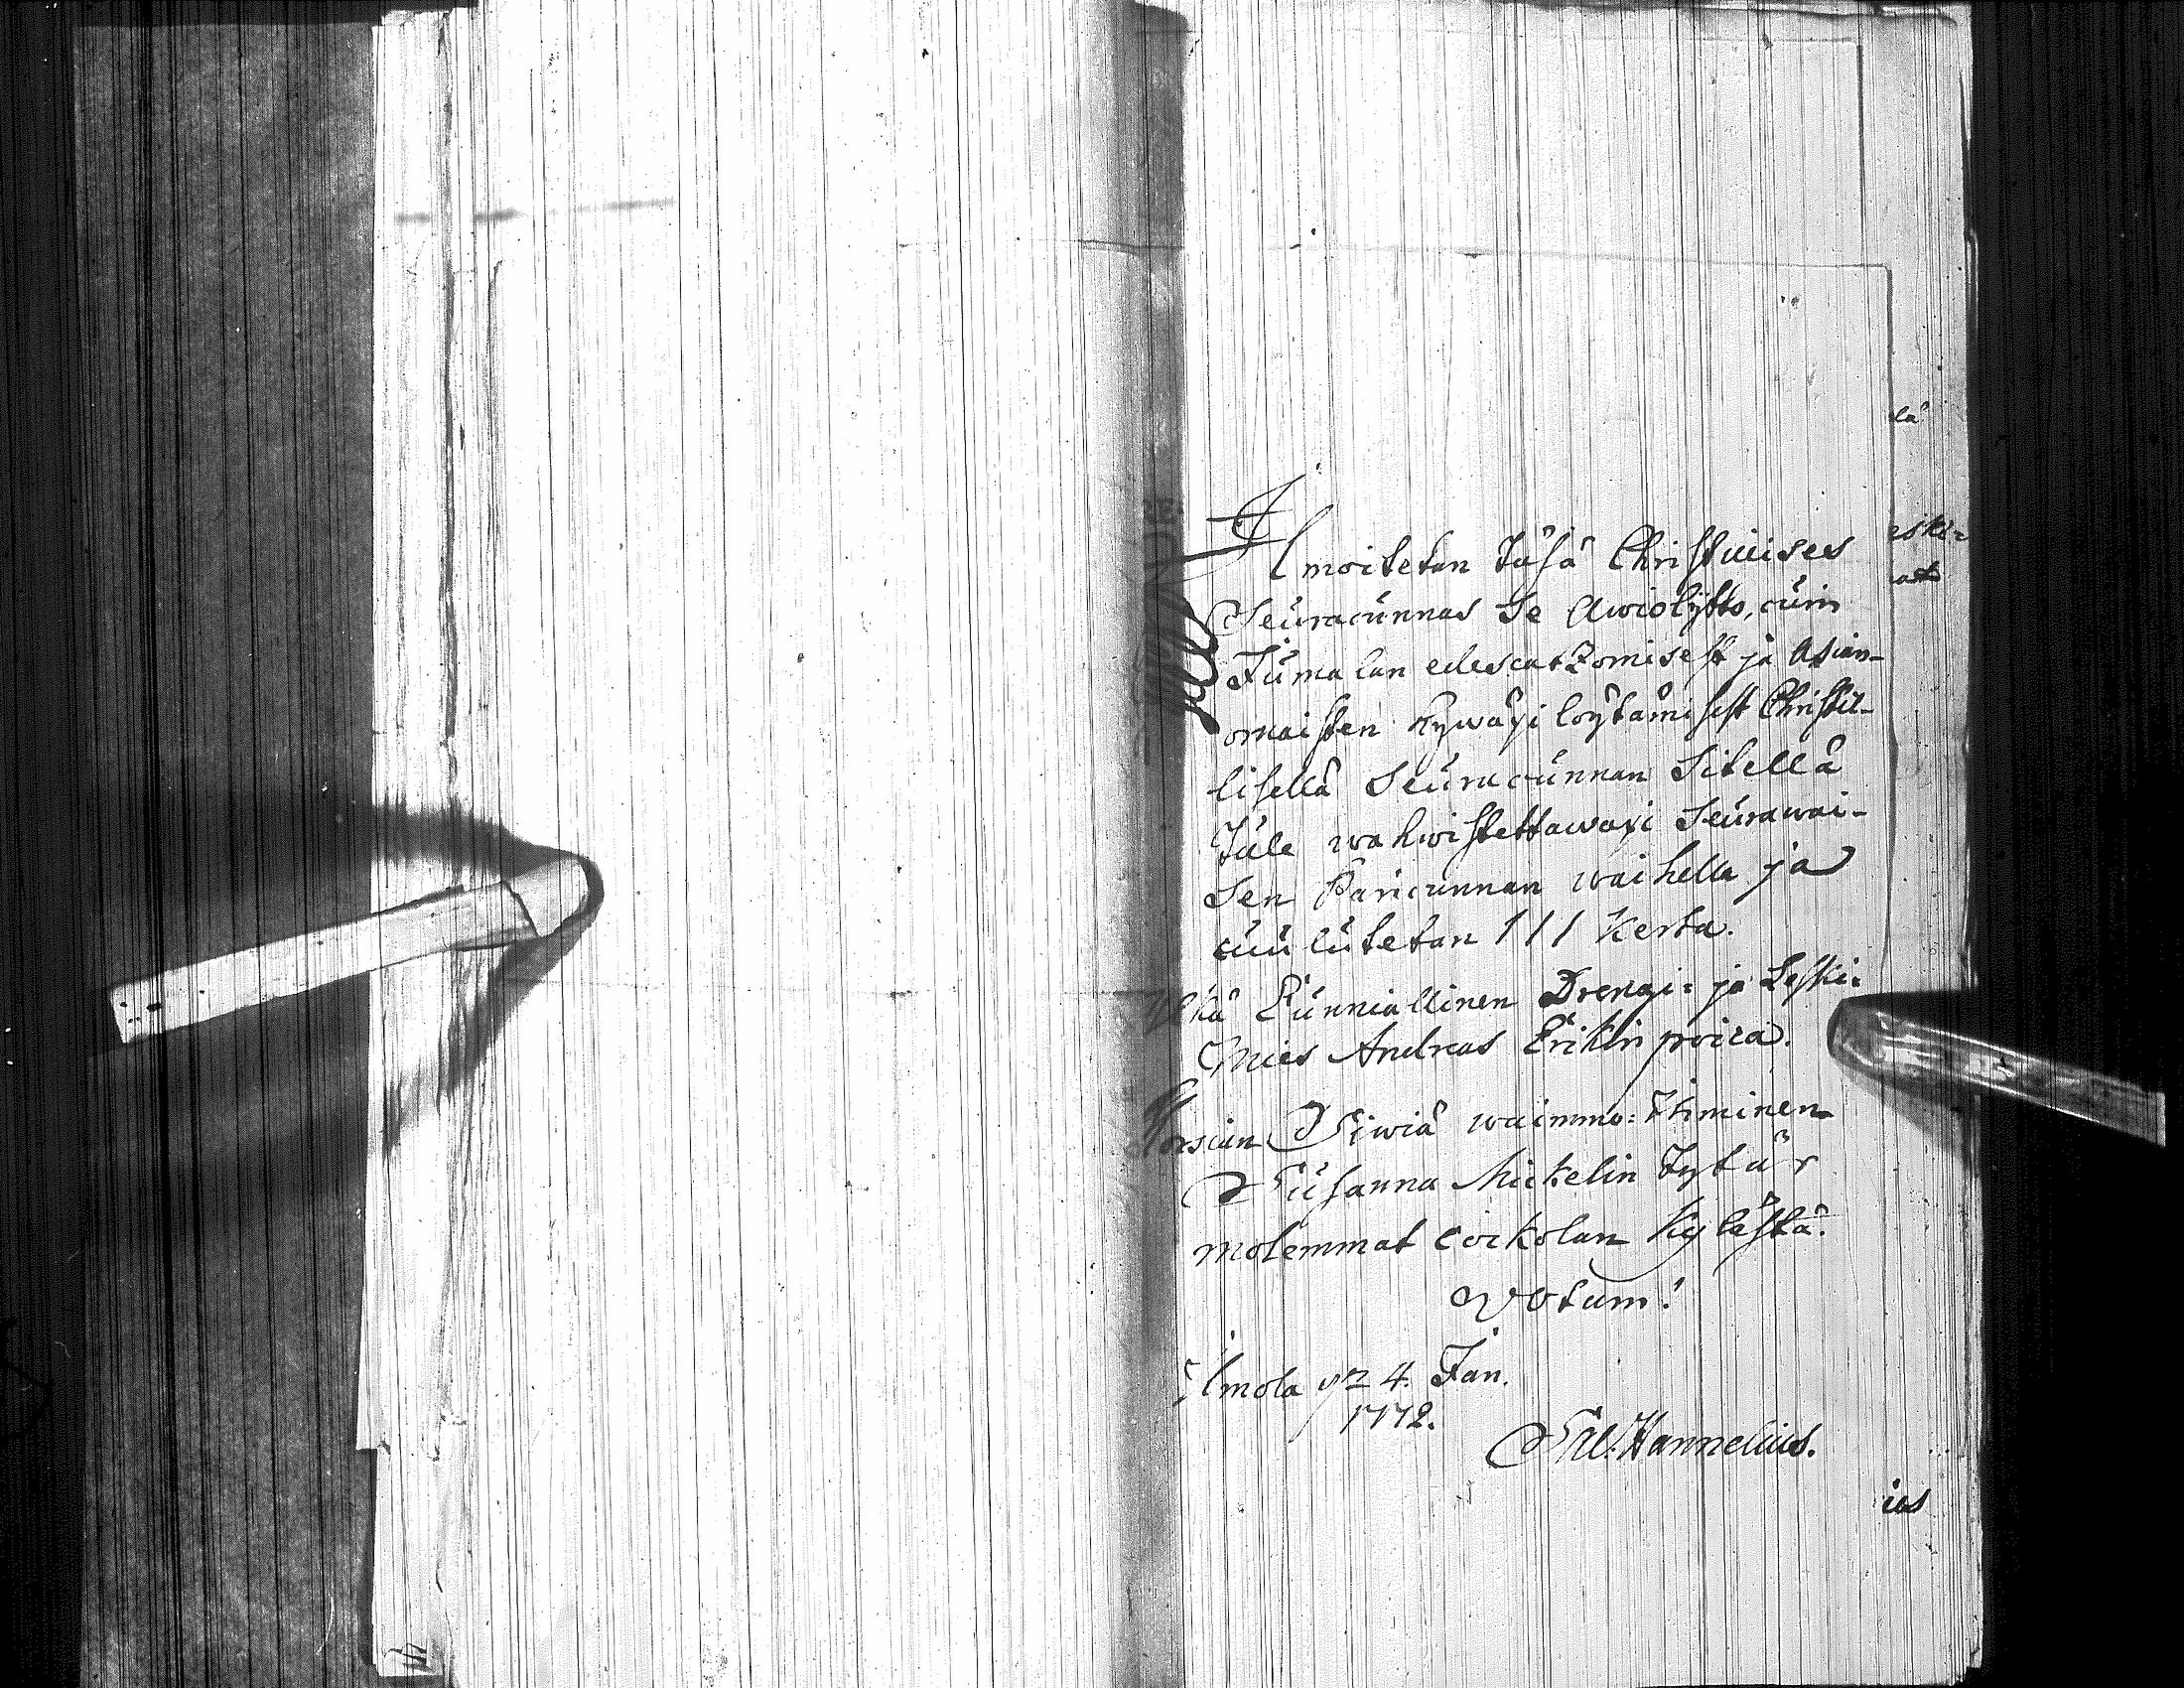 Ilmoitetan täsä Christilises
Seuracunnas se Awiolijtto, cuin
Jumalan edescatzomisest ja Asian-
omaisten hywäxi löytämisest Christil-
lisellä Seuracunnan Sitellä
Tule wahwistettawaxi Seurawai-
sen Paricunnan waihella ja
cuulutetan III Kerta.
Ylkä Cunniallinen Drengi= ja Leski=
Mies Andreas Erikin poica.
Morsian Siwiä waimmo: Ihminen
Susanna Mickelin Tytär
molemmat Coskolan Kylästä.
Votum!
Ilmola pn 4. Jan.
1772.
Hannelius.
lä
eski=
at
ius